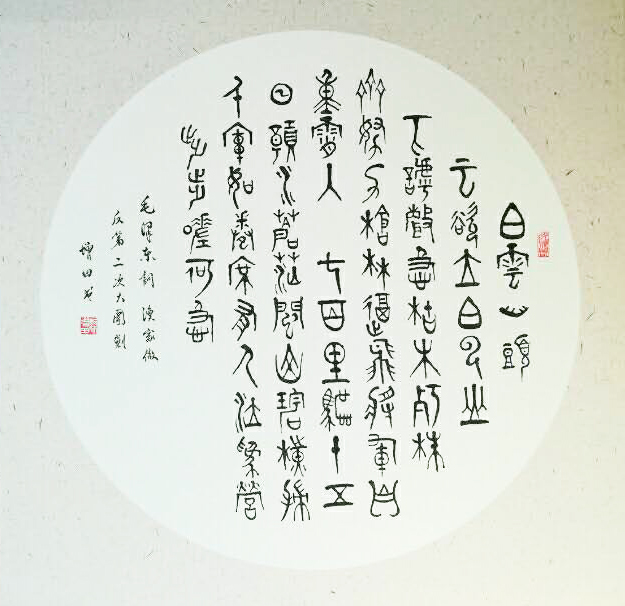 白雲山頭
云欲立白云山
下謼聲急枯木朽株
齊努力槍林逼飛將軍自
重霄入 七百里驅十五
日贛水蒼茫閩山碧橫掃
千軍如卷席有人泣為營
步步嗟何及
毛泽东詞 渔家傲
反第二次大圍剿
增田书